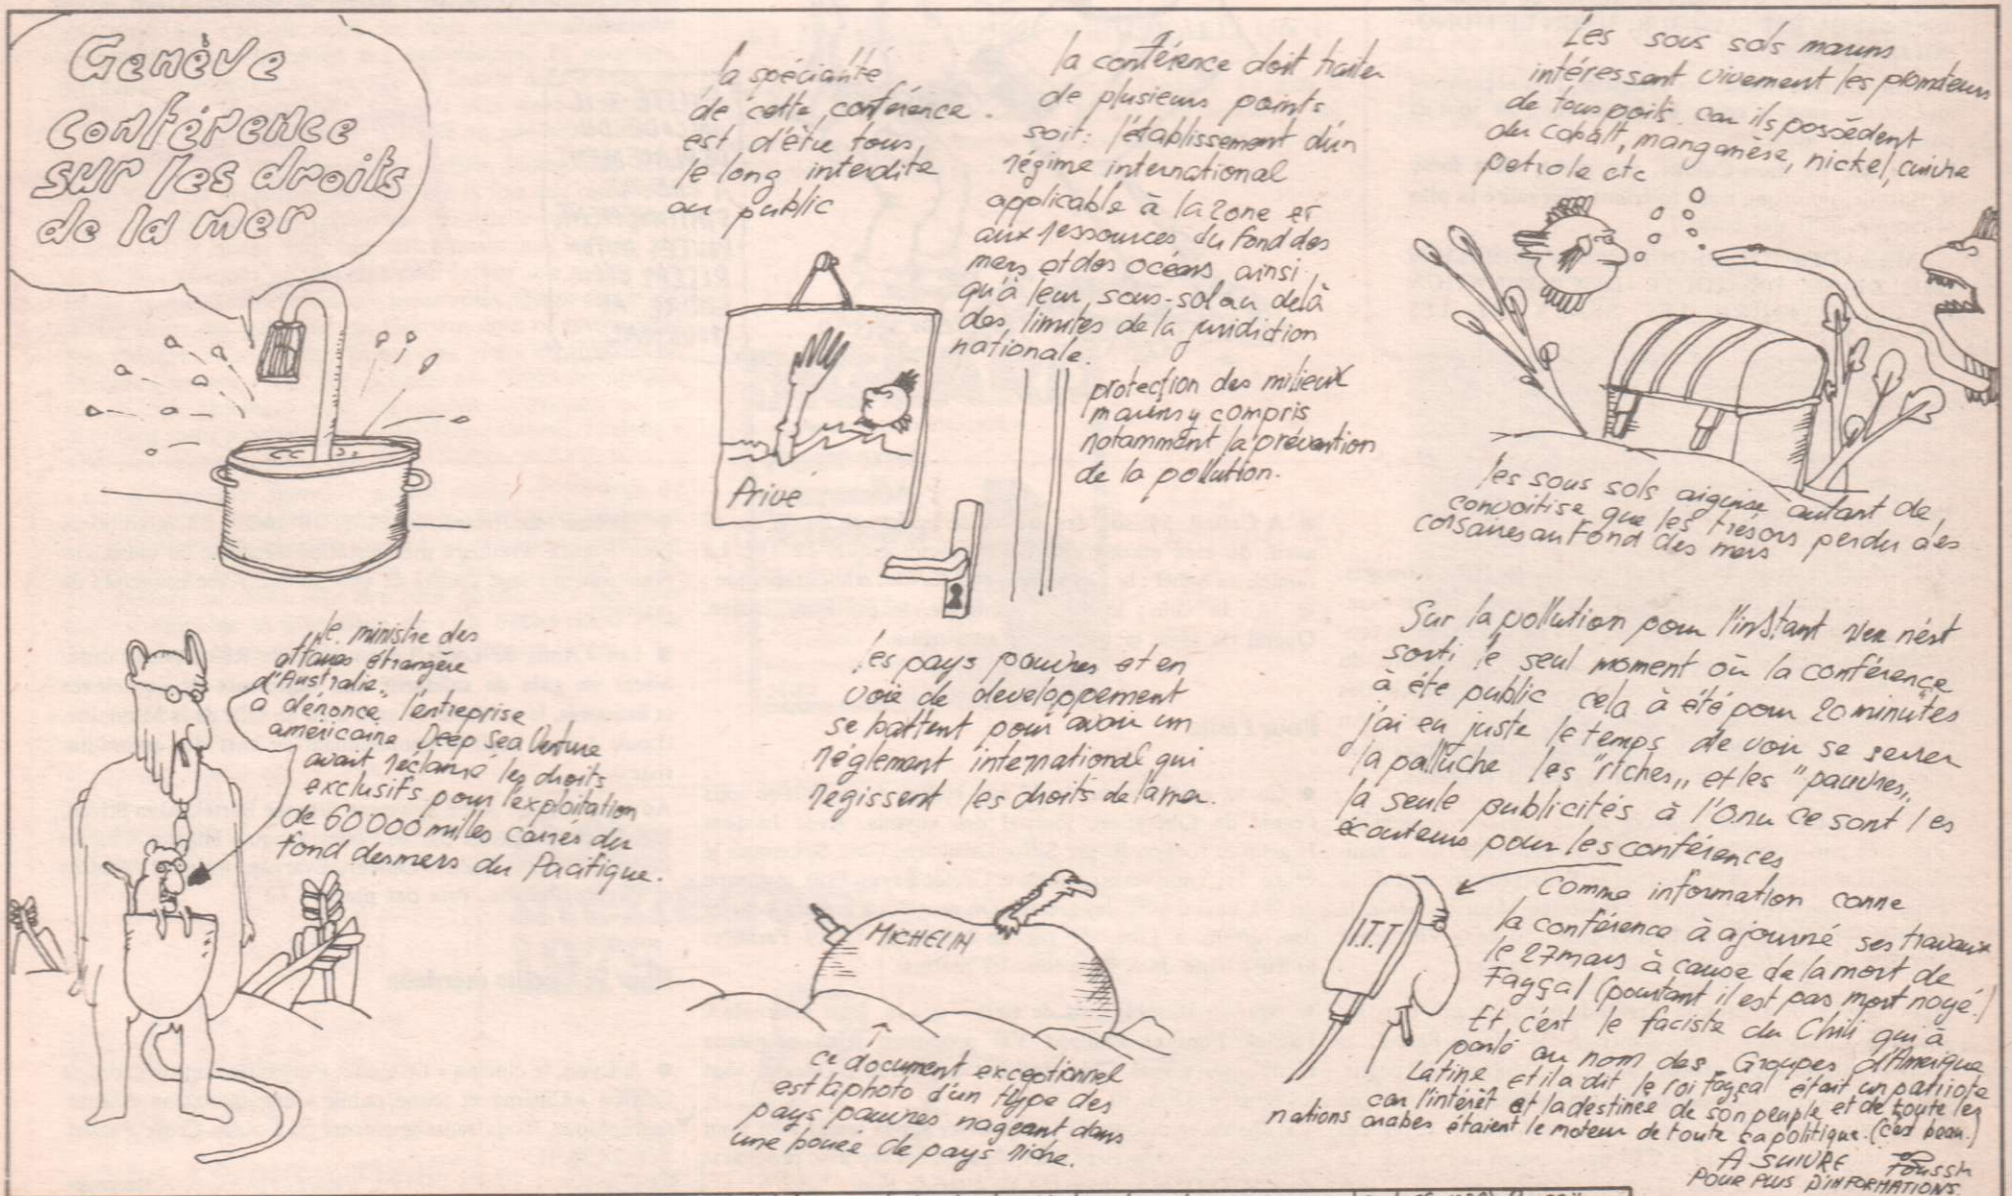 Genève
Conférence
sur les droits
de la mer
la spécialité
de cette conférence.
est d'être tous
le long interdite
au public
Privé
la conférence doit traiter
de plusieurs points
soit: l'établissement d'un
régime international
applicable à la zone et
aux ressources du fond des
mers et des océans, ainsi
qu'à leur sous-sol au delà
des limites de la juridiction
nationale.
protection des milieux
marins y compris
notamment la prévention
de la pollution.
Les sous sols marins
intéressent vivement les promoteurs
de tous poils. car ils possèdent
du cobalt, manganèse, nickel, cuivre
petrole etc
les sous sols aiguise autant de
convoitise que les trésors perdu des
corsaires au fond des mers
le ministre des
affaires étrangère
d'Australie
a dénoncé l'entreprise
américaine Deep Sea Venture
avait réclamé les droits
exclusifs pour l'exploitation
de 60 000 milles carrés du
fond des mers du Pacifique.
les pays pauvres et en
voie de developpement
se battent pour avoir un
réglement international qui
régissent les droits de la mer.
MICHELIN
ce document exceptionnel
est la photo d'un type des
pays pauvres nageant dans
une bouée de pays riche.
Sur la pollution pour l'instant rien n'est
sorti le seul moment où la conférence
à été public cela à été pour 20 minutes
j'ai eu juste le temps de voir se serrer
la palluche les "riches" et les "pauvres"
la seule publicités à l'Onu ce sont les
écouteurs pour les conférences
I.T.T
Comme information conne
la conférence à ajourné ses travaux
le 27 mars à cause de la mort de
Fayçal (pourtant il est pas mort noyé!)
Et c'est le faciste du Chili qui à
parlé au nom des Groupes d'Amerique
Latine et il a dit le roi Fayçal était un patriote
car l'intérêt et la destinée de son peuple et de toute les
nations arabes étaient le moteur de toute sa politique. (c'est beau.)
A SUIVRE
POUR PLUS D'INFORMATIONS